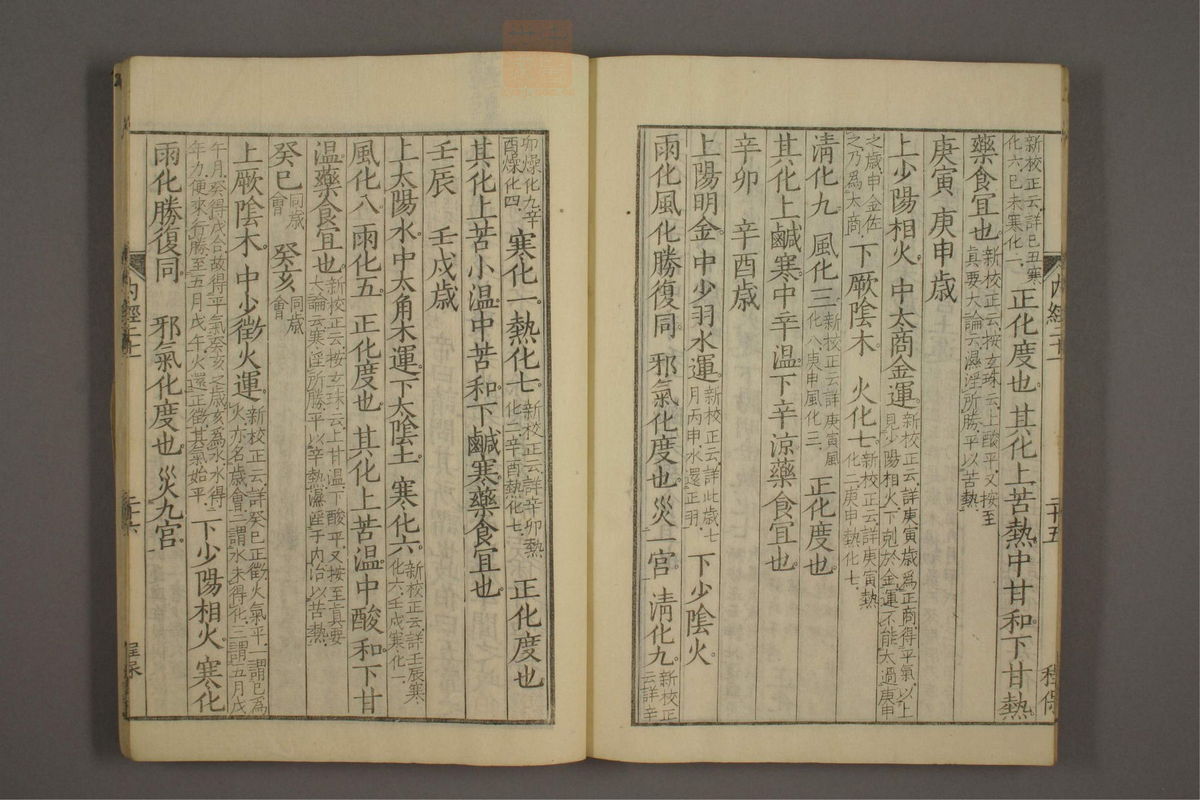 新校正云詳己丑寒化六己未寒化一 正化度也 其化上苦熱中甘和下甘熱
藥食宜也 新校正云按玄珠云上酸平又按至真要大論云濕淫所勝平以苦熱
庚寅 庚申歲
上少陽相火 中太商金運 新校正云詳庚寅歲爲正商得平氣以上見少陽相火下剋於金運不能太過庚申
之歲申金佐之乃爲太商 下厥陰木 火化七 新校正云詳庚寅熱化二庚申熱化七
清化九 風化三 新校正云詳庚寅風化八庚申風化三 正化度也
其化上鹹寒中辛温下辛涼藥食宜也
辛卯 辛酉歲
上陽明金 中少羽水運 新校正云詳此歲七月丙申水還正羽 下少陰火
雨化風化勝復同 邪氣化度也 災一宮 清化九 新校正云詳辛
内經二十一 二十五
卯燥化九辛酉燥化四 寒化一 熱化七 新校正云詳辛卯熱化二辛酉熱化七 正化度也
其化上苦小温中苦和下鹹寒藥食宜也
壬辰 壬戌歲
上太陽水 中太角木運 下太陰土 寒化六 新校正云詳壬辰寒化六壬戌寒化一
風化八 雨化五 正化度也 其化上苦温中酸和下甘
温藥食宜也 新校正云按玄珠云上甘温下酸平又按至真要大論云寒淫所勝平以辛熱濕淫于内治以苦熱
癸巳 同歲會 癸亥 同歲會
上厥陰木 中少徵火運 新校正云詳癸巳正徵火氣平一謂巳爲火亦名歲會二謂水未得化三謂五月戊
午月癸得戊合故得平氣癸亥之歲亥爲水水得年力便來行勝至五月戊午火還正徵其氣始平 下少陽相火 寒化
雨化勝復同 邪氣化度也 災九宮
内經二十一 二十六